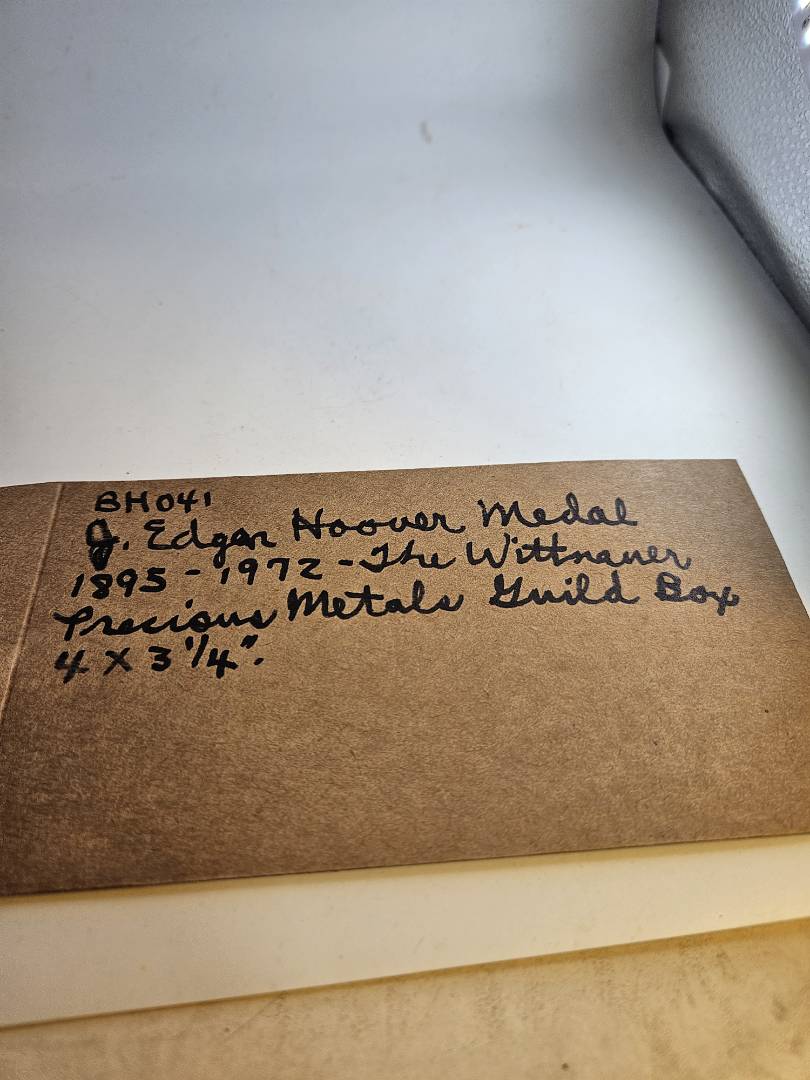 BH041
J. Edgar Hoover Medal
1895-1972-The Wittnauer
Precious Metals Guild Box
4 X 3 1/4".